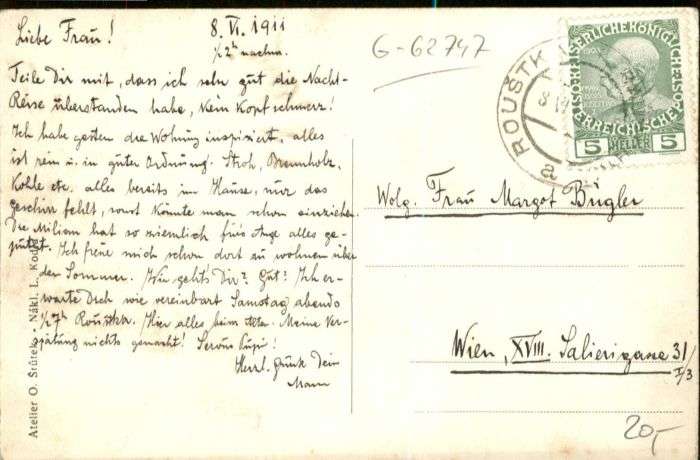 Liebe Frau!
8. VI. 1911
½2h nachm.
Teile Dir mit, dass ich sehr gut die Nacht-
Reise überstanden habe, kein Kopfschmerz!
Ich habe gestern die Wohnung inspiziert, alles
ist rein u. in guter Ordnung. Stroh, Brennholz,
Kohle etc. alles bereits im Hause, nur das
geschirr fehlt, sonst könnte man schon einziehen.
Die hat so ziemlich für's Auge alles ge-
putzt. Ich freue mich schon dort zu wohnen über
den Sommer. Wie geht's Dir? Gut! Ich er-
warte Dich wie vereinbart Samstag abends
½7h Roustka. Hier alles beim alten. Meine Ver-
spätung nichts gemacht! Servus
Herzl. Gruß Dein
Mann
G-62747
ROUŠTK
KAISERLICHE KÖNIGLICHE
ÖSTERREICHISCHE
5 HELLER 5
Wolg. Frau Margot Bügler
Wien, XVIII. Salierigasse 31/
I/3
20,-
Atelier O. Šrůtek • Nákl. L.